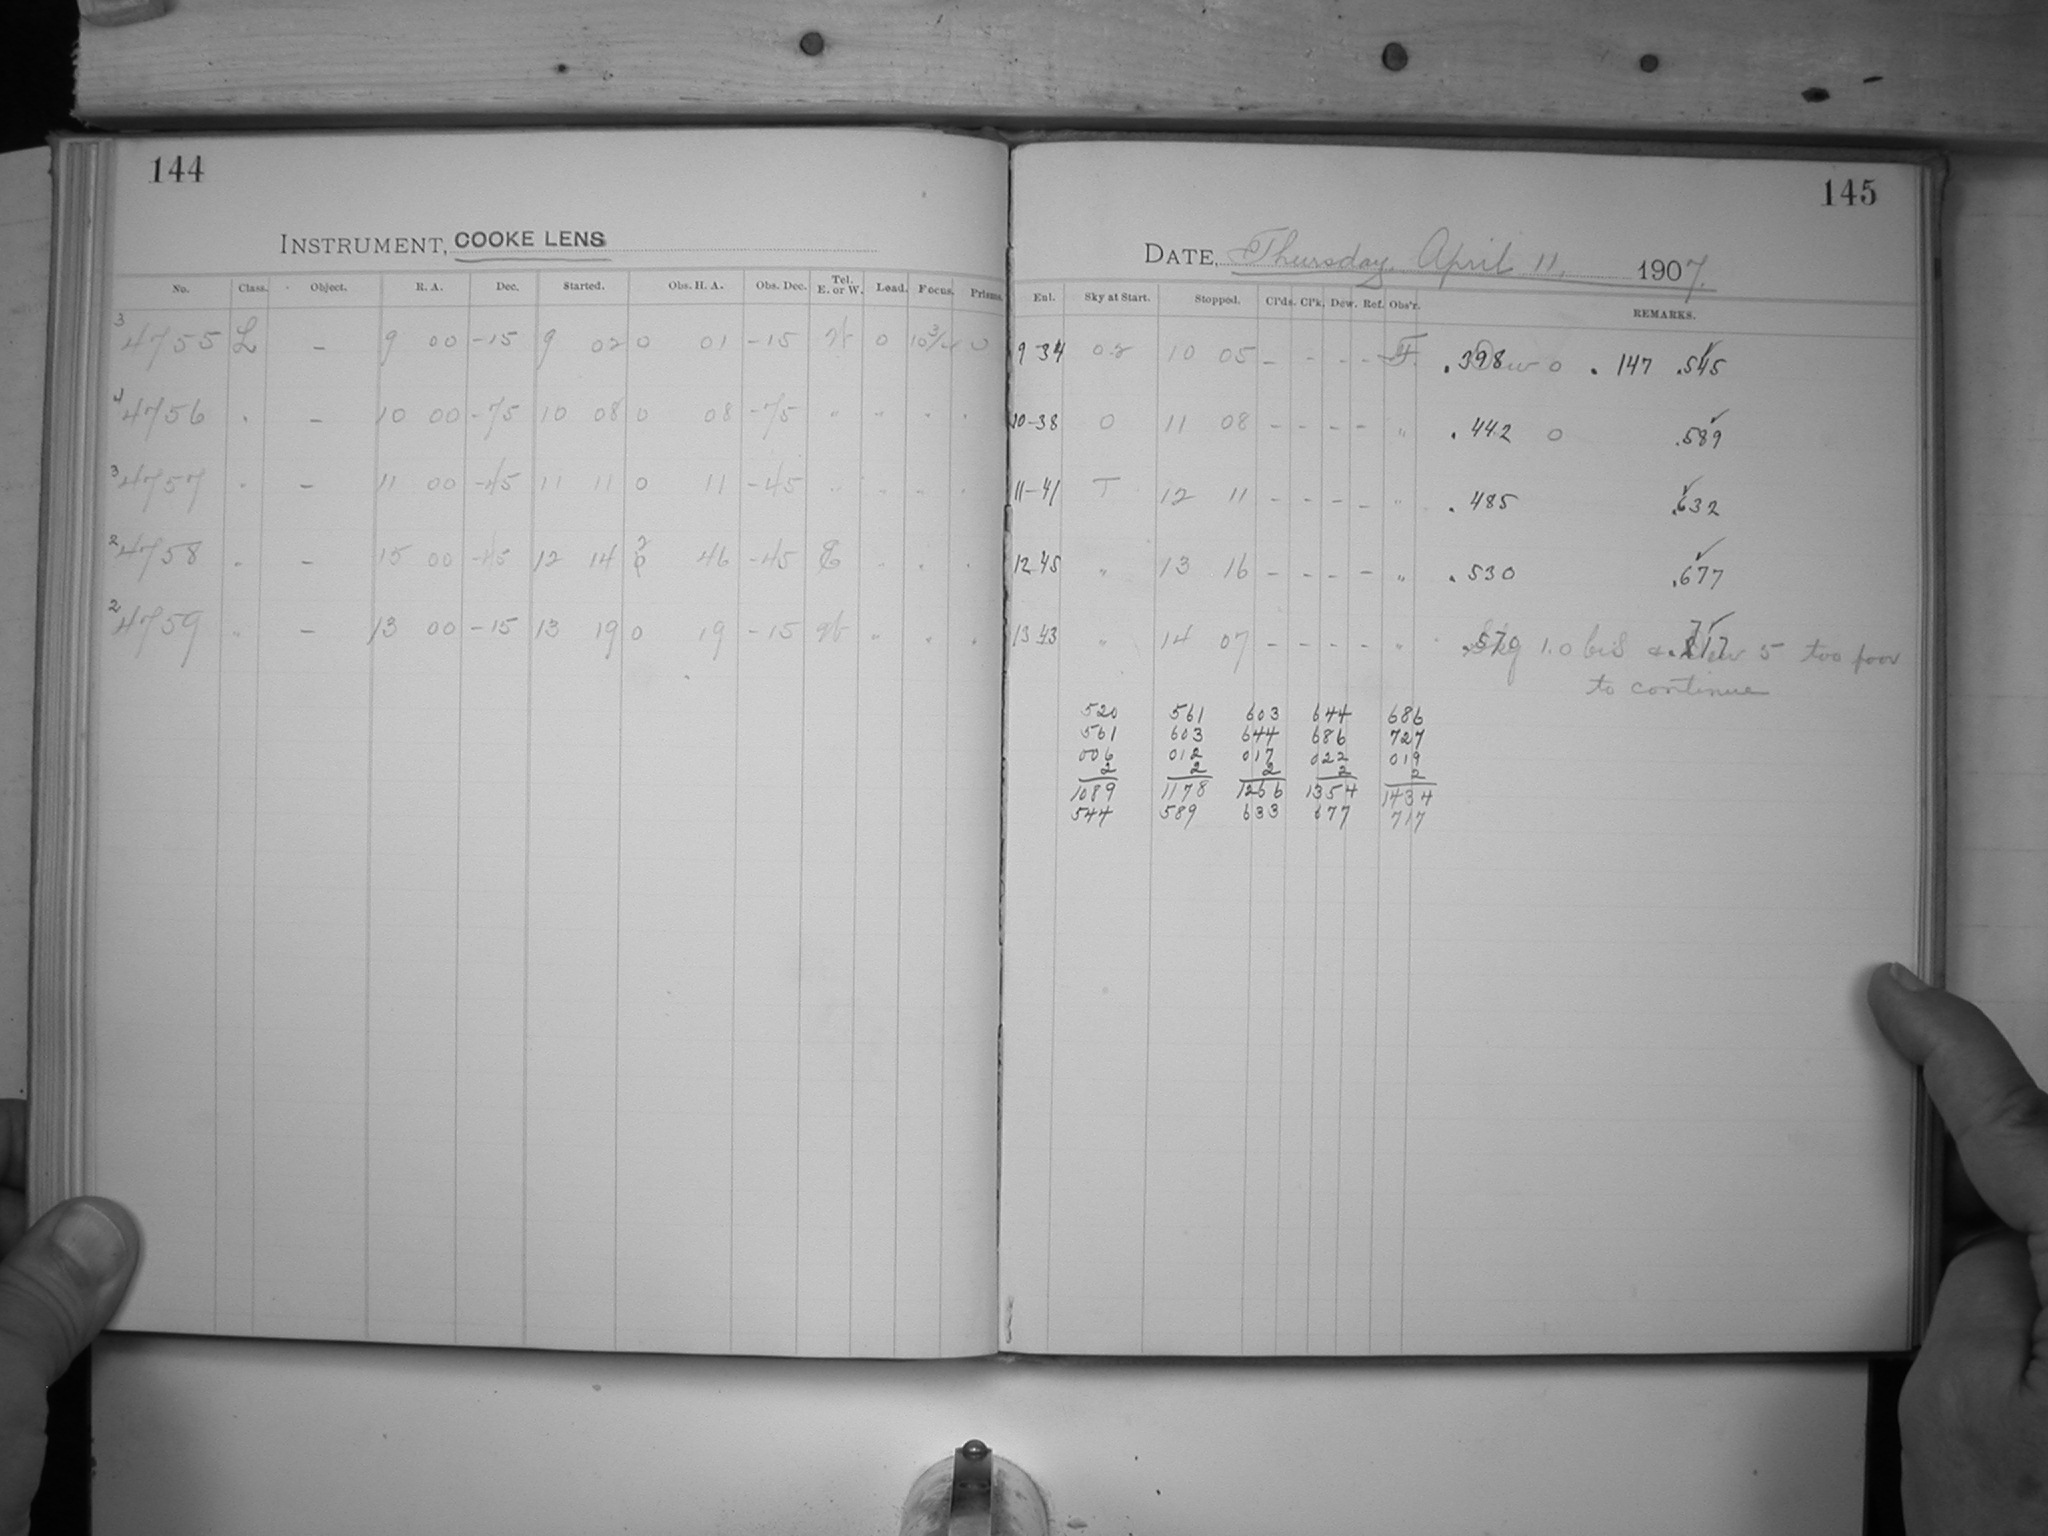 144
INSTRUMENT, COOKE LENS
No. Class. Object. R. A. Dec. Started. Obs. H. A. Obs. Dec. Tel. E. or W. Lead. Focus. Prisms.
3 4755 L - 9 00 -15 9 02 0 01 -15 W 0 10 3/4 0
4 4756 " - 10 00 -75 10 08 0 08 -75 " " " "
3 4757 " - 11 00 -45 11 11 0 11 -45 " " " "
2 4758 " - 15 00 -45 12 14 2 46 -45 E " " "
2 4759 " - 13 00 -15 13 19 0 19 -15 W " " "
145
DATE, Thursday, April 11, 1907.
Ent. Sky at Start. Stopped. Cl'ds. Cl'k. Dew. Ref. Obs'r. REMARKS.
9-34 10 05 - - - - F. .398 0 .147 .545
10-38 0 11 08 - - - - " .442 0 .589
11-41 T 12 11 - - - - " .485 .632
12 45 " 13 16 - - - - " .530 .677
13 43 " 14 07 - - - - " .570 Sky 1.0 .717 5 too poor
to continue
520 561 603 644 686
561 603 644 686 727
006 012 017 022 019
2 2 2 2 2
1089 1178 1266 1354 1434
544 589 633 677 717